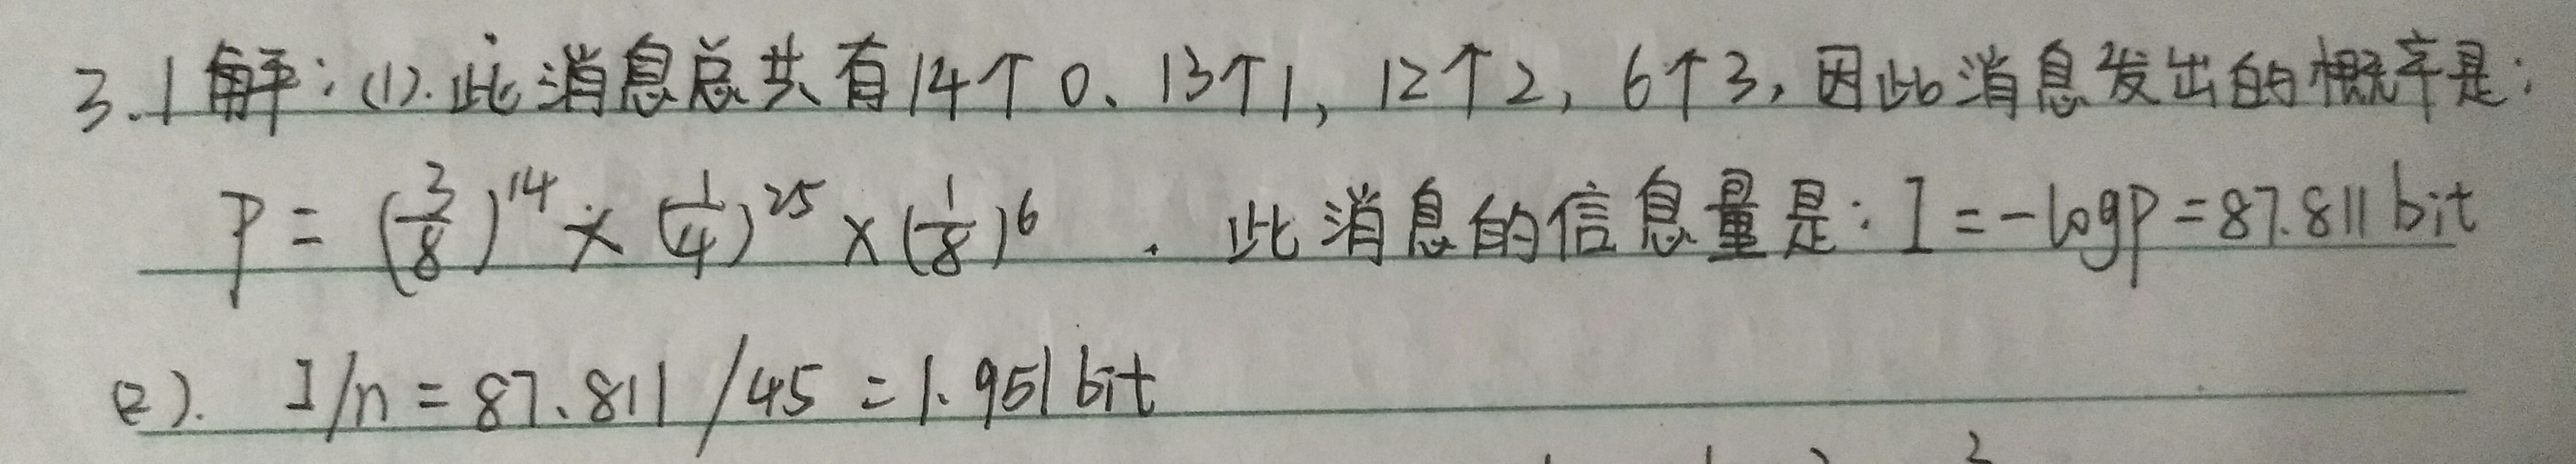 3.1解：(1).此消息总共有14个0、13个1，12个2，6个3，因此消息发出的概率是：
P = (3/8)^14 × (1/4)^25 × (1/8)^6 . 此消息的信息量是：I = -logP = 87.811 bit
(2). I/n = 87.811/45 = 1.951 bit